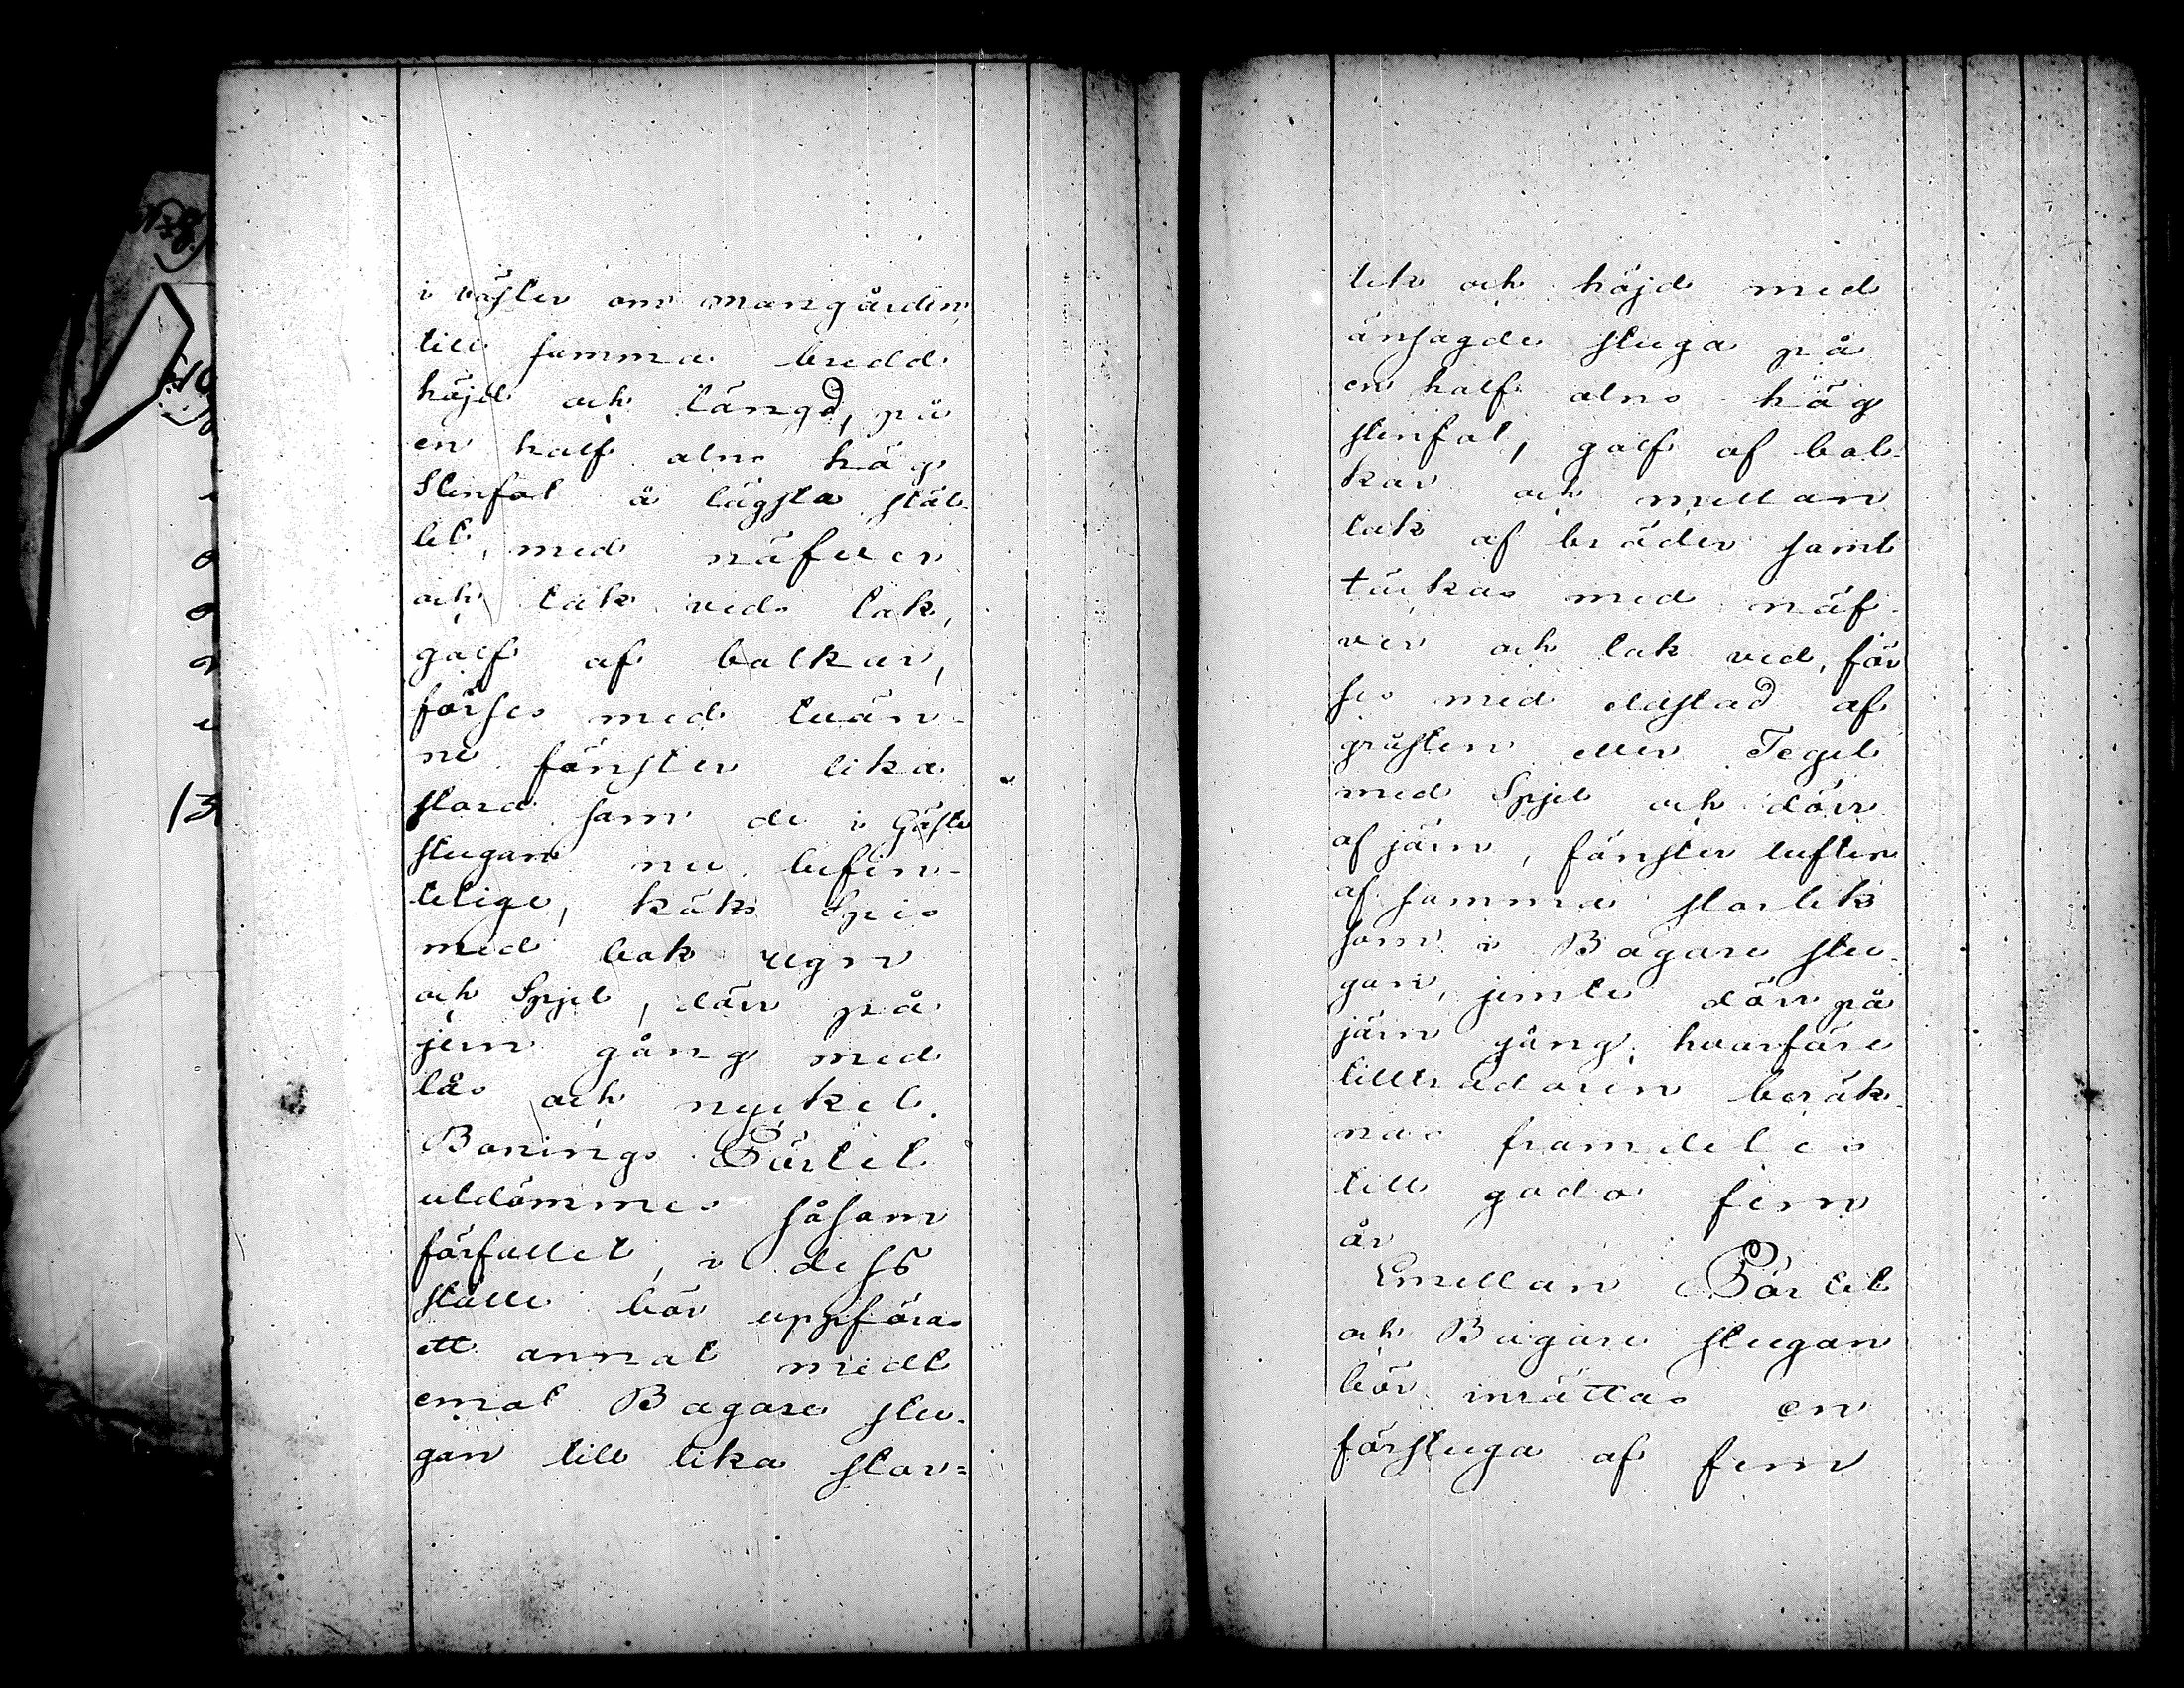 i väster om mangården,
till samma bredd
höjd och längd, på
en half aln hög
Stenfot å lägsta stäl-
let, med näfver
och tak ved tak,
golf af balkar,
förses med tvän-
ne fönster lika
stora som de i Gäste
stugan nu befin-
telige, köks Spis
med bak ugn
och Spjel, dörr på
jern gång med
lås och nyckel.
Bonings Pörtet
utdömmes såsom
förfallet, i dess
ställe bör uppföras
ett annat midt
emot Bagare stu-
gan till lika stor-
lek och höjd med
änsagde stuga på
en half alns hög
stenfot, golf af bal-
kar och mellan
tak af bräder samt
täckas med näf-
ver och tak ved, för
ses med eldstad af
gråsten eller Tegel
med Spjel och dörr
af järn, fönster lufter
af samma storlek
som i Bagare stu-
gan, jemte dörr på
järn gång, hvarföre
tillträdaren beräk-
nas framdeles
till godo fem
år
Emellan Pörtet
och Bagare stugan
bör inrättas en
förstuga af fem
13